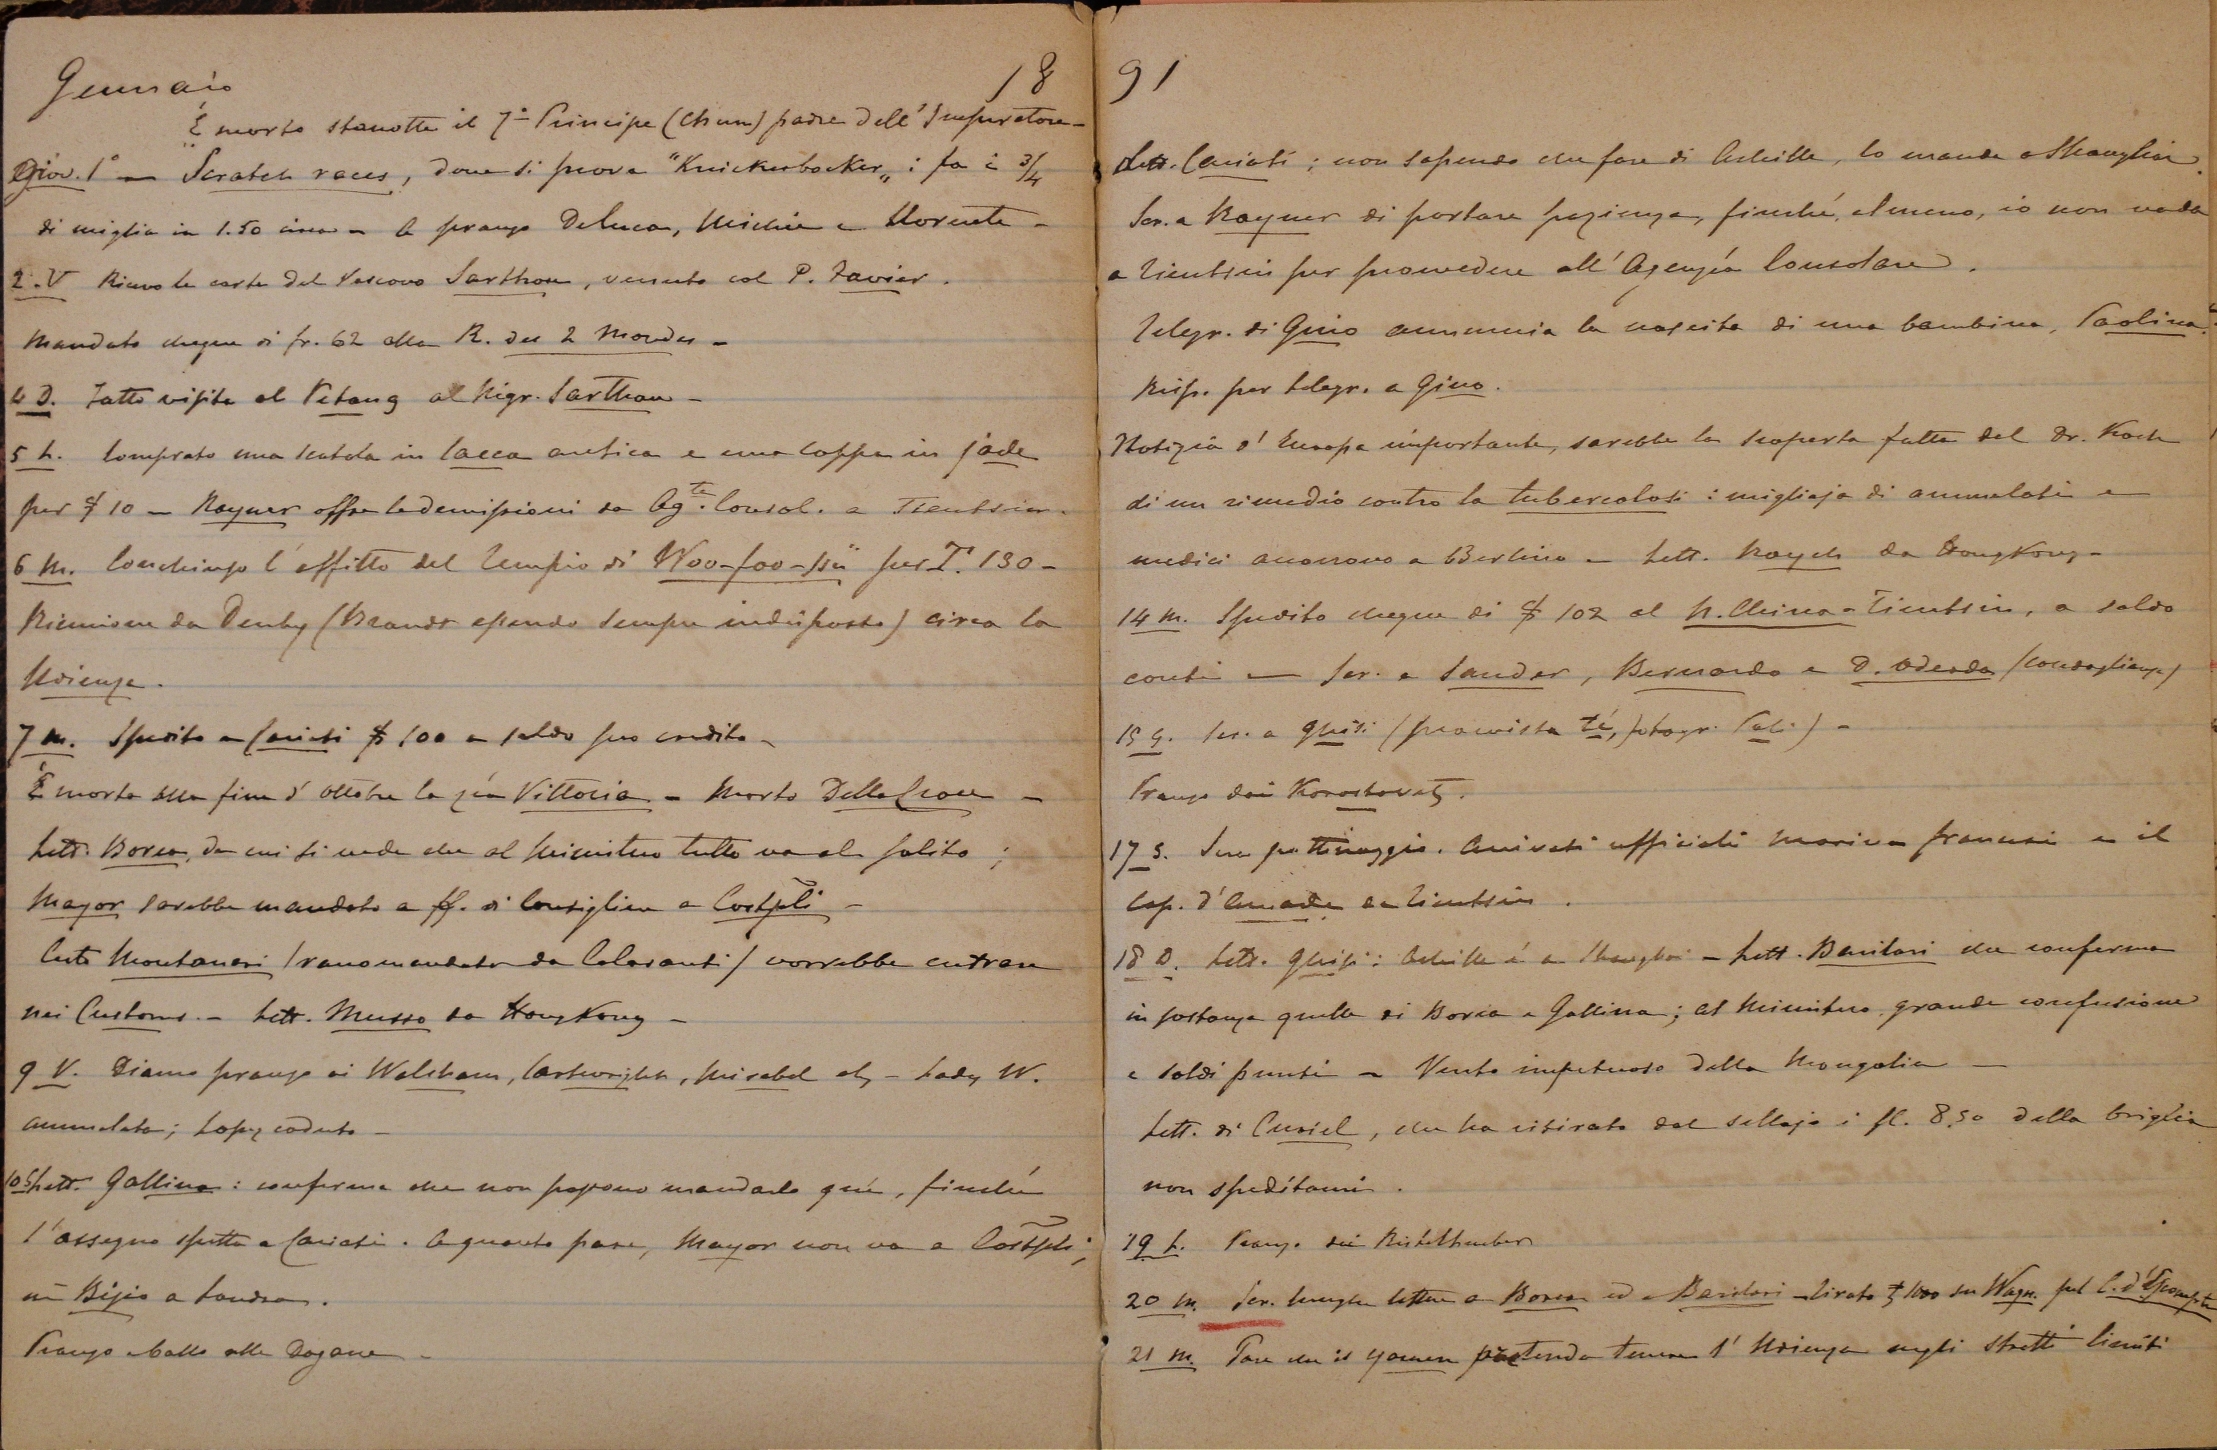 Gennaio 18
È morto stanotte il 7º Principe (Chun) padre dell'Imperatore –
Giov. 1º – Scratch races, dove si prova "Knickerbocker„ : fa i 3/4
di miglia in 1.50 circa – A pranzo Deluca, Michie e Llorente –
2. V Ricevo le carte del Vescovo Sarthou, venuto col P. Favier.
Mandato chèque di fr. 62 alla R. des 2 Mondes –
4 D. Fatto visita al Petang al Migr. Sarthou –
5 L. Comprato una scatola in lacca antica e una coppa in jade
per $ 10 – Rayner offre le demissioni da Ag.te Consol. a Tientsin.
6 M. Conchiuso l'affitto del tempio di Woo-foo-ssu per T. 130 –
Riunione da Denby (Brandt essendo sempre indisposto) circa la
Udienza.
7 M. Spedito a Cariati $ 100 a saldo suo credito –
È morta alla fine d'ottobre la zia Vittoria – Morto Della Croce –
Lett. Borea, da cui si vede che al Ministero tutto va al solito ;
Mayor sarebbe mandato a ff. di Consigliere a Costpli –
Certo Montanari (raccomandato da Colaranti) vorrebbe entrare
nei Customs. – Lett. Musso da Hong Kong –
9 V. Diamo pranzo ai Walsham, Cartwright, Mirabel etc – Lady W.
ammalata; Lopez caduto –
10 S Lett. Gallina : conferma che non possono mandarlo qui, finchè
l'assegno spetta a Cariati. A quanto pare, Mayor non va a Costpli ;
nè Bisio a Londra.
Pranzo e ballo alle Dogane –
91
Lett. Cariati ; non sapendo che fare di Achille, lo manda a Shanghai.
Scr. a Rayner di portare pazienza, finchè, almeno, io non vada
a Tientsin per provvedere all'Agenzia Consolare.
Telegr. di Gino annuncia la nascita di una bambina, Paolina.
Risp. per telegr. a Gino.
Notizia d'Europa importante, sarebbe la scoperta fatta dal Dr. Koch
di un rimedio contro la tubercolosi : migliaja di ammalati e
medici accorrono a Berlino – Lett. Rayek da Hong Kong –
14 M. Spedito chèque di $ 102 al H. China – Tientsin, a saldo
conti – Scr. a Sander, Bernardo e D. Odeada (condoglianze)
15 G. Scr. a Ghisi (provvista té, fotogr. Pal.) –
Pranzo dai Korostovetz.
17 S. Sera pattinaggio. Arrivati ufficiali marina francese e il
Cap. d'Amade da Tientsin.
18 D. Lett. Ghisi : Achille è a Shanghai – Lett. Barilari che conferma
in sostanza quelle di Borea e Gallina ; al Ministero grande confusione
e soldi punti – Vento impetuoso dalla Mongolia –
Lett. di Curiel, che ha ritirato dal sellajo i fl. 8.50 della briglia
non speditami.
19 L. Pranzo dai Ristelhueber
20 M. Scr. lunghe lettere a Borea ed a Barilari – tirato £ 1000 su Wagn. pel C. d'Escompte
21 M. Pare che il yamen pretenda tenere l'Udienza negli stretti limiti